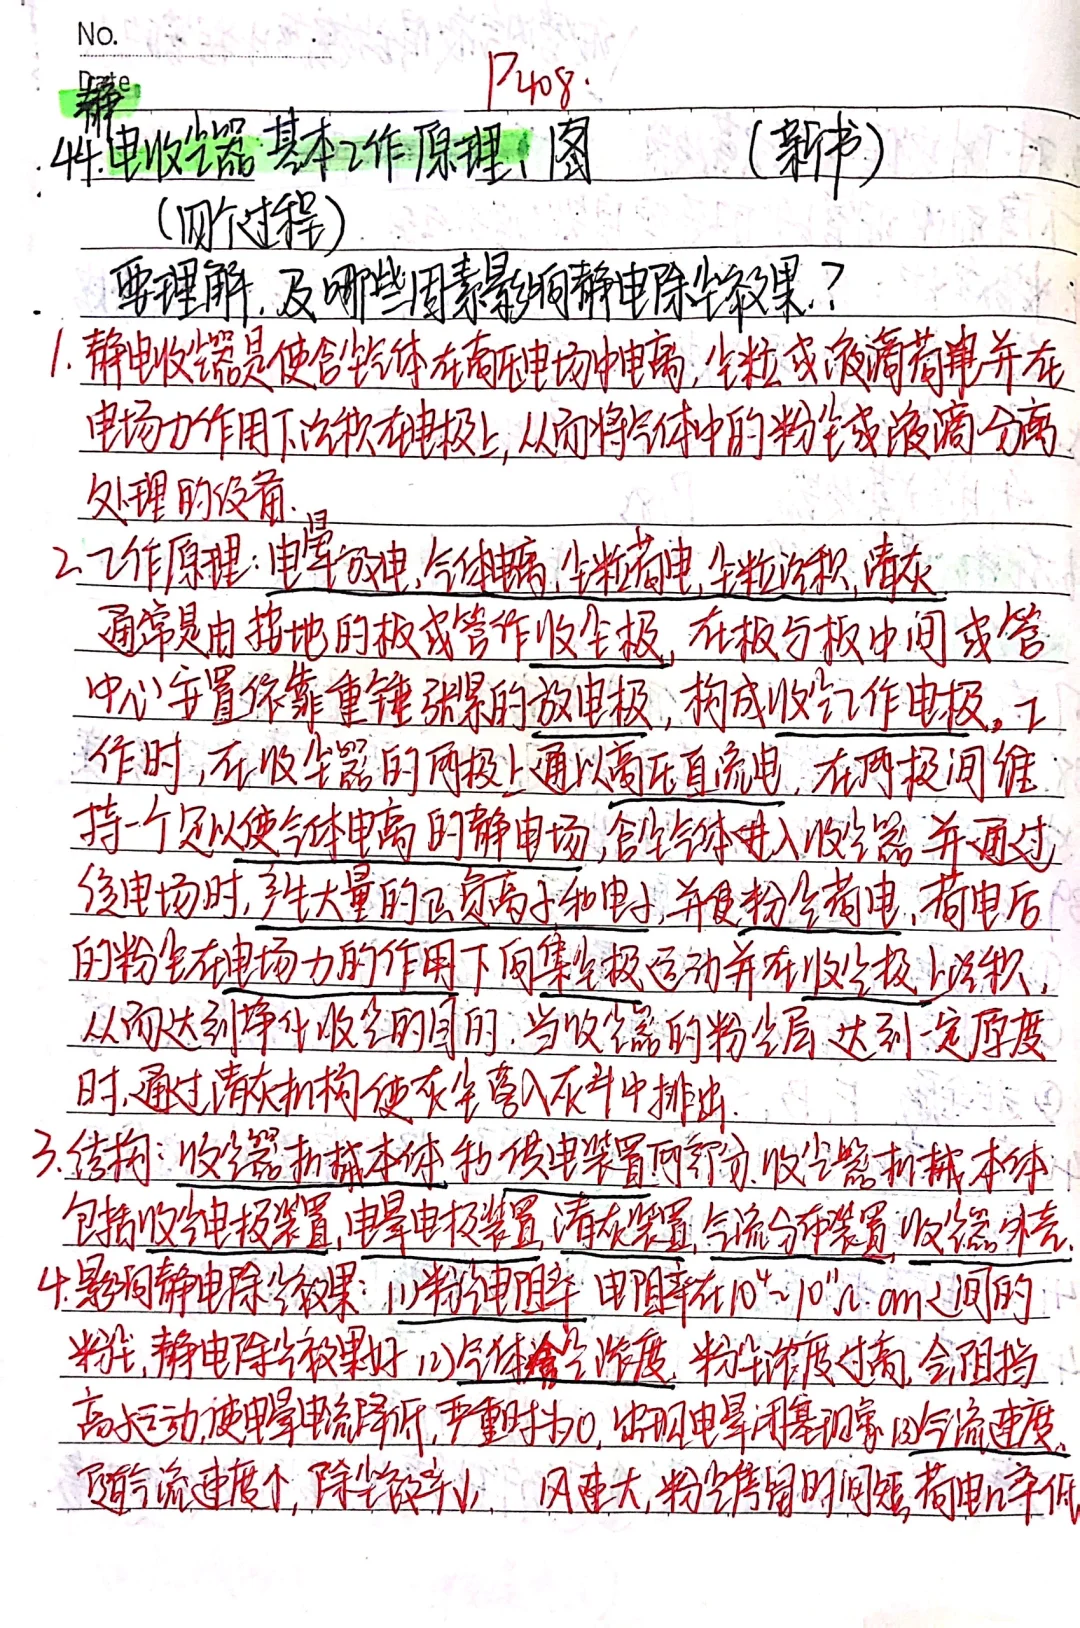 No.
Date
P408.
静
44.电收尘器基本工作原理、图 (新书)
(四个过程)
要理解,及哪些因素影响静电除尘效果?
1.静电收尘器是使含尘气体在高压电场中电离,尘粒或液滴荷电并在
电场力作用下沉积在电极上,从而将气体中的粉尘或液滴分离
处理的设备.
2.工作原理:电晕放电,气体电离,尘粒荷电,尘粒沉积,清灰
通常是由接地的板或管作收尘极,在板与板中间或管
中心安置依靠重锤张紧的放电极,构成收尘工作电极。工
作时,在收尘器的两极上通以高压直流电,在两极间维
持一个足以使气体电离的静电场,含尘气体进入收尘器并通过
该电场时,产生大量的正负离子和电子,并使粉尘荷电,荷电后
的粉尘在电场力的作用下向集尘极运动并在收尘极上沉积,
从而达到净化收尘的目的.当收尘器的粉尘层达到一定厚度
时,通过清灰机构使灰尘落入灰斗中排出.
3.结构:收尘器机械本体和供电装置两部分.收尘器机械本体
包括收尘电极装置,电晕电极装置,清灰装置,气流分布装置,收尘器外壳.
4.影响静电除尘效果:(1)粉尘电阻率 电阻率在10⁴~10¹¹Ω·cm之间的
粉尘,静电除尘效果好 (2)气体含尘浓度 粉尘浓度过高,会阻挡
离子运动,使电晕电流降低,严重时为0,出现电晕闭塞现象 (3)气流速度.
随气流速度↑,除尘效率↓, 风速大,粉尘停留时间短,荷电几率低